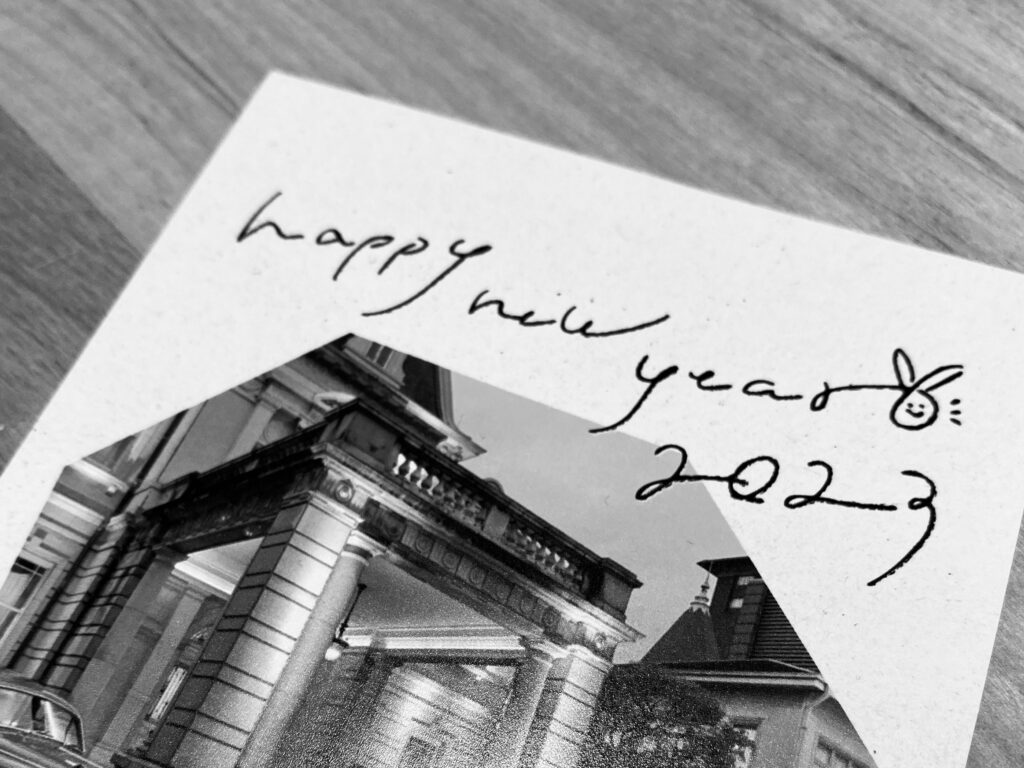 happy new year
2023